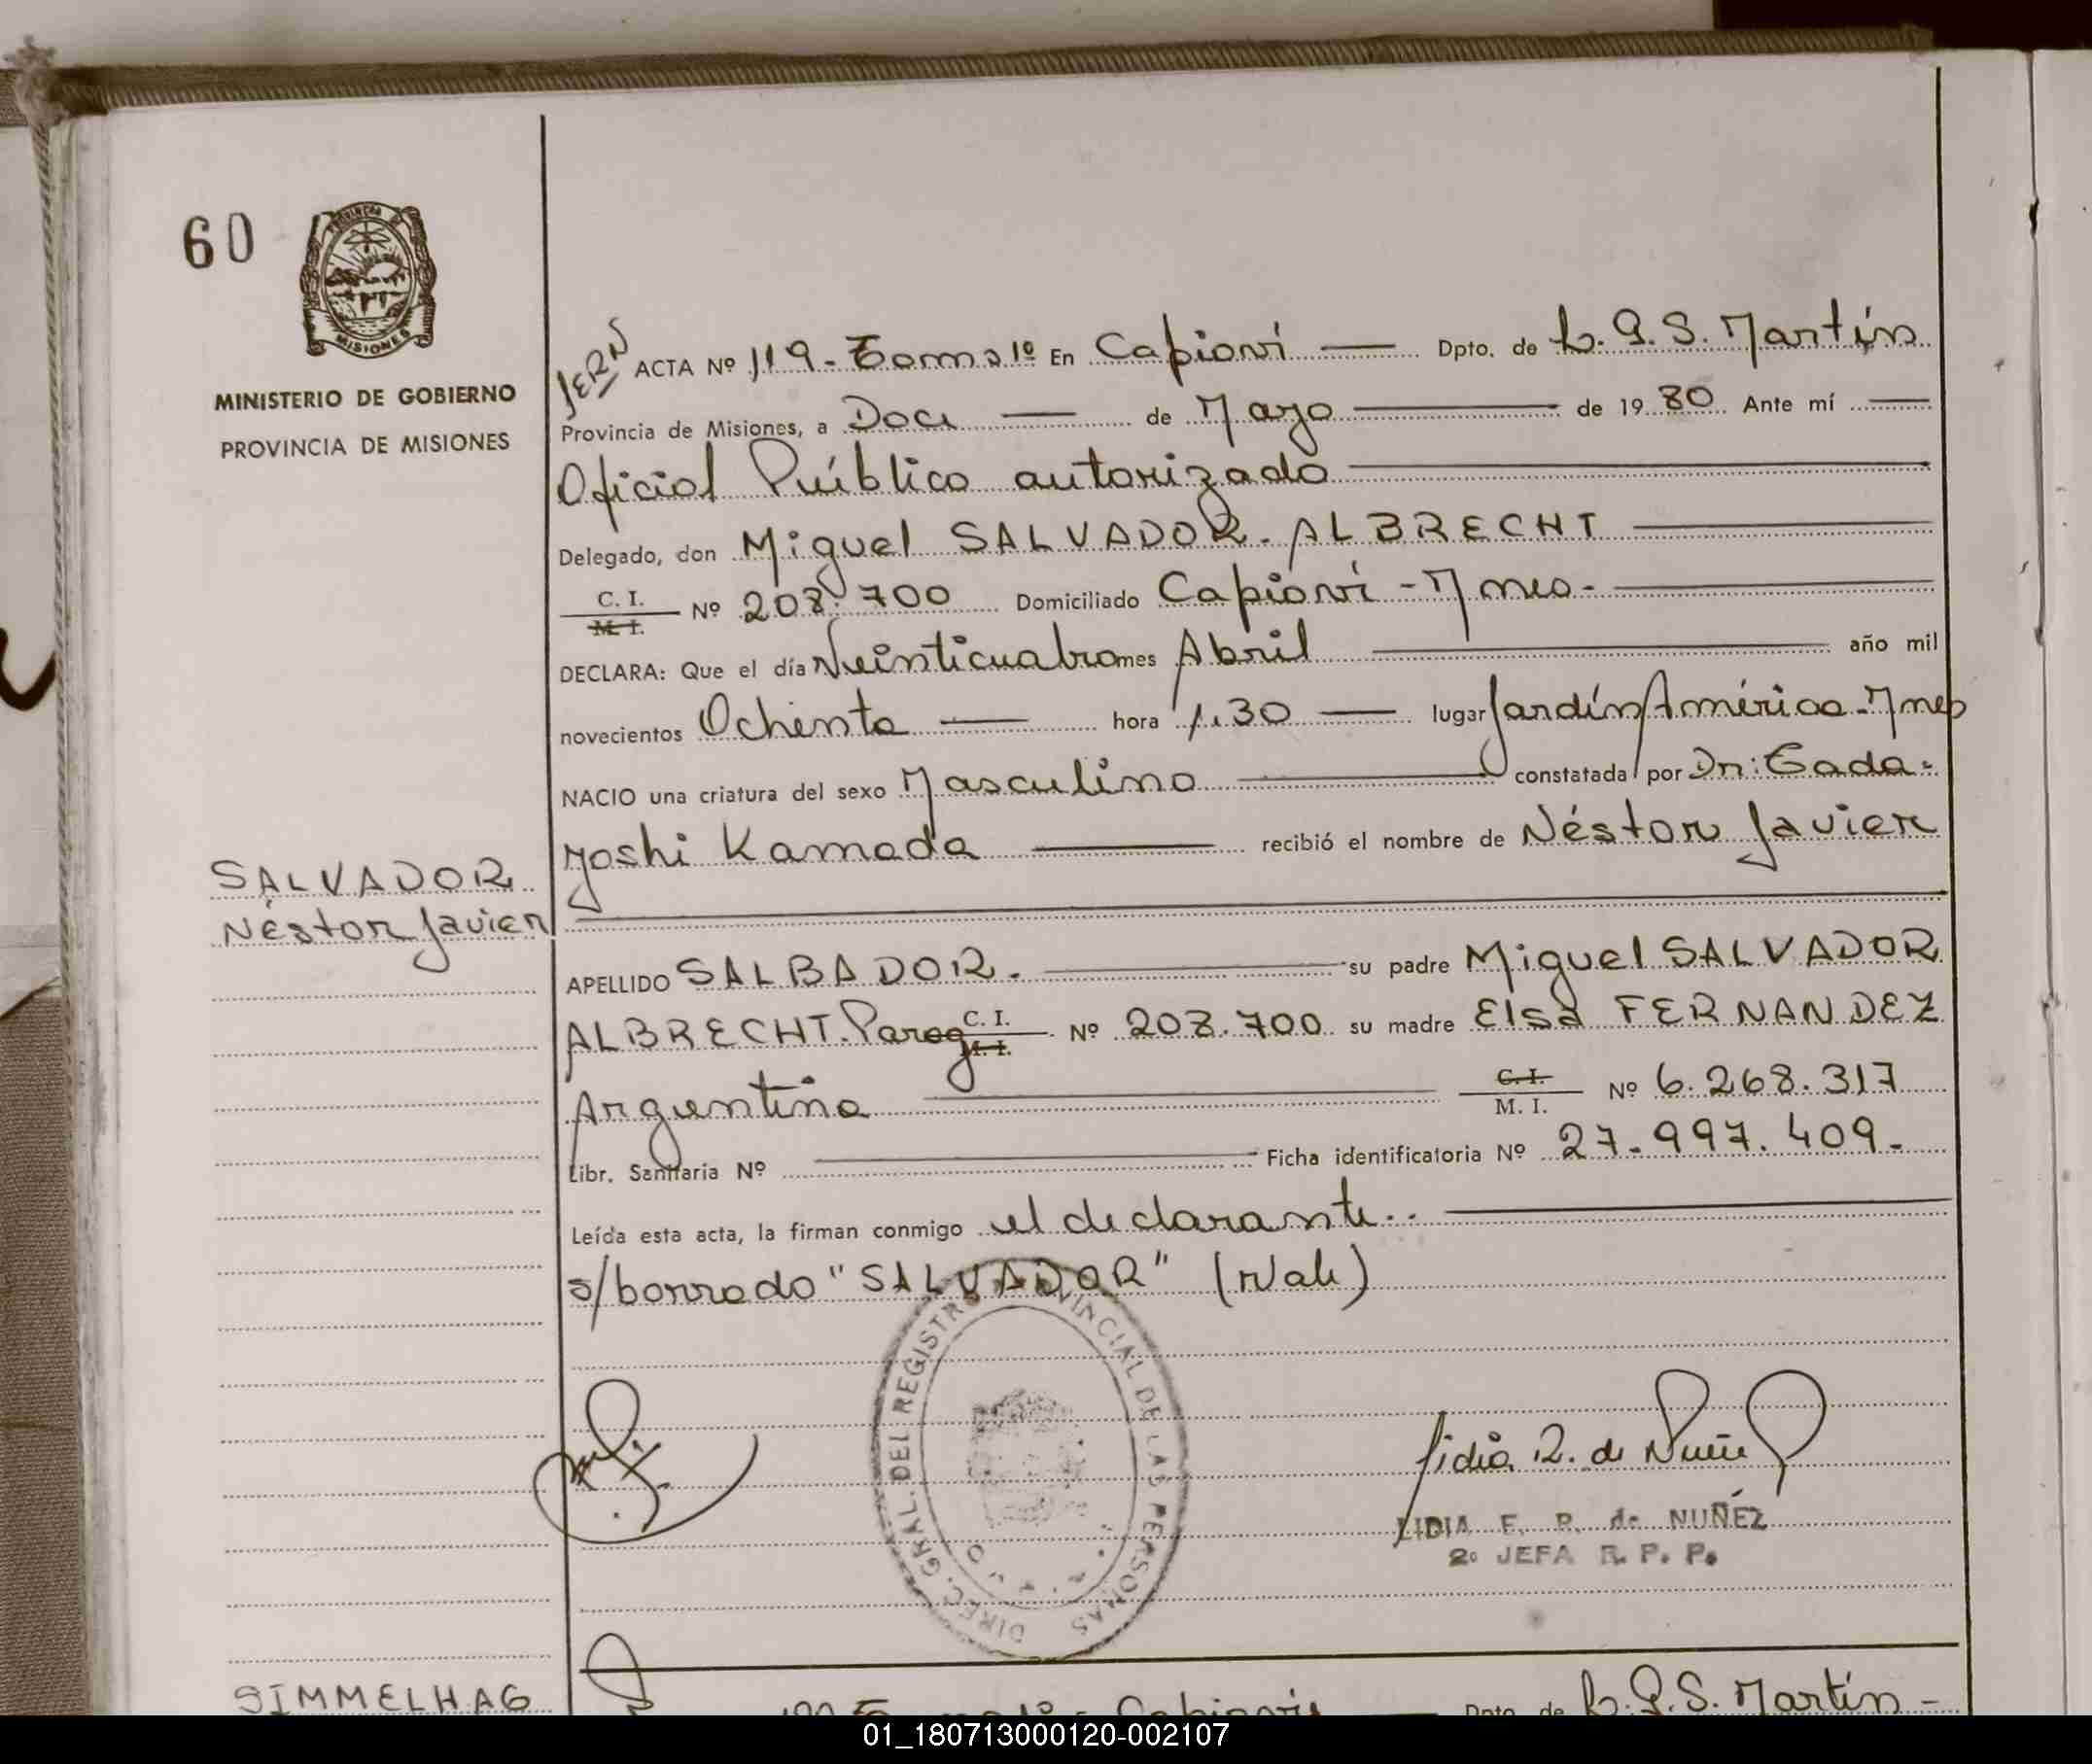 60
PROVINCIA D
MISIONES
MINISTERIO DE GOBIERNO
PROVINCIA DE MISIONES
SALVADOR
Néstor Javier
JERN ACTA Nº 119.- Tomo 1º En Capioví — Dpto. de L. G. S. Martín
Provincia de Misiones, a Doce — de Mayo — de 1980 Ante mí —
Oficial Público autorizado —
Delegado, don Miguel SALVADOR. ALBRECHT —
C. I. M. I. Nº 208.700 Domiciliado Capioví - Mnes. —
DECLARA: Que el día Veinticuatro mes Abril — año mil
novecientos Ochenta — hora 1.30 — lugar Jardín América - Mnes
NACIO una criatura del sexo Masculino — constatada por Dr: Tada-
yoshi Kamada — recibió el nombre de Néstor Javier
APELLIDO SALBADOR. — su padre Miguel SALVADOR
ALBRECHT. Parag C. I. M. I. Nº 208.700 su madre Elsa FERNANDEZ
Argentina — C. I. M. I. Nº 6.268.317
Libr. Sanitaria Nº — Ficha identificatoria Nº 27.997.409.
Leída esta acta, la firman conmigo el declarante.. —
s/borrado "SALVADOR" (Vale)
DIREC. GRAL. DEL REGISTRO PROVINCIAL DE LAS PERSONAS
Lidia R. de Nuñez
LIDIA F. R. de NUÑEZ
2º JEFA R. P. P.
SIMMELHAG
Capioví — Dpto. de L. G. S. Martín -
01_180713000120-002107